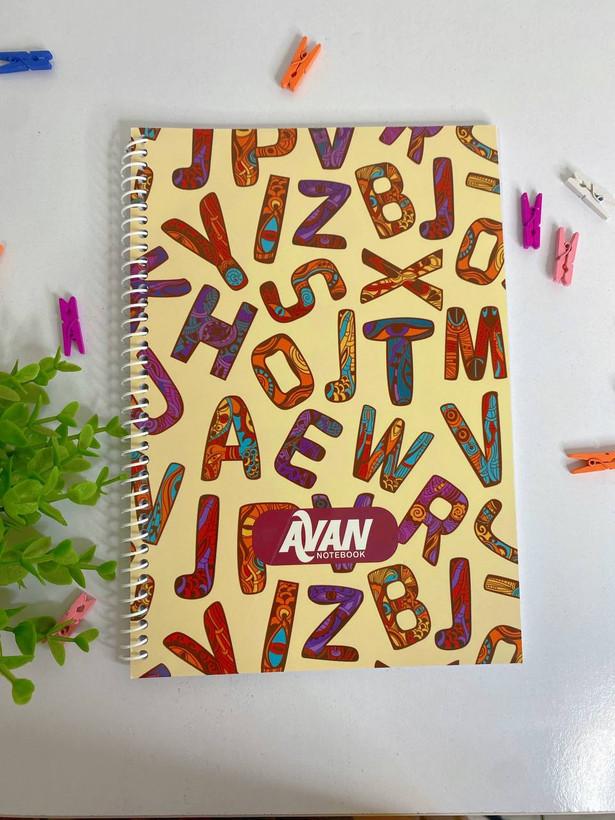 J P V
Y I Z B J O
S X
H O J T M
A E W V
J P R
AVAN
NOTEBOOK
Y I Z B J